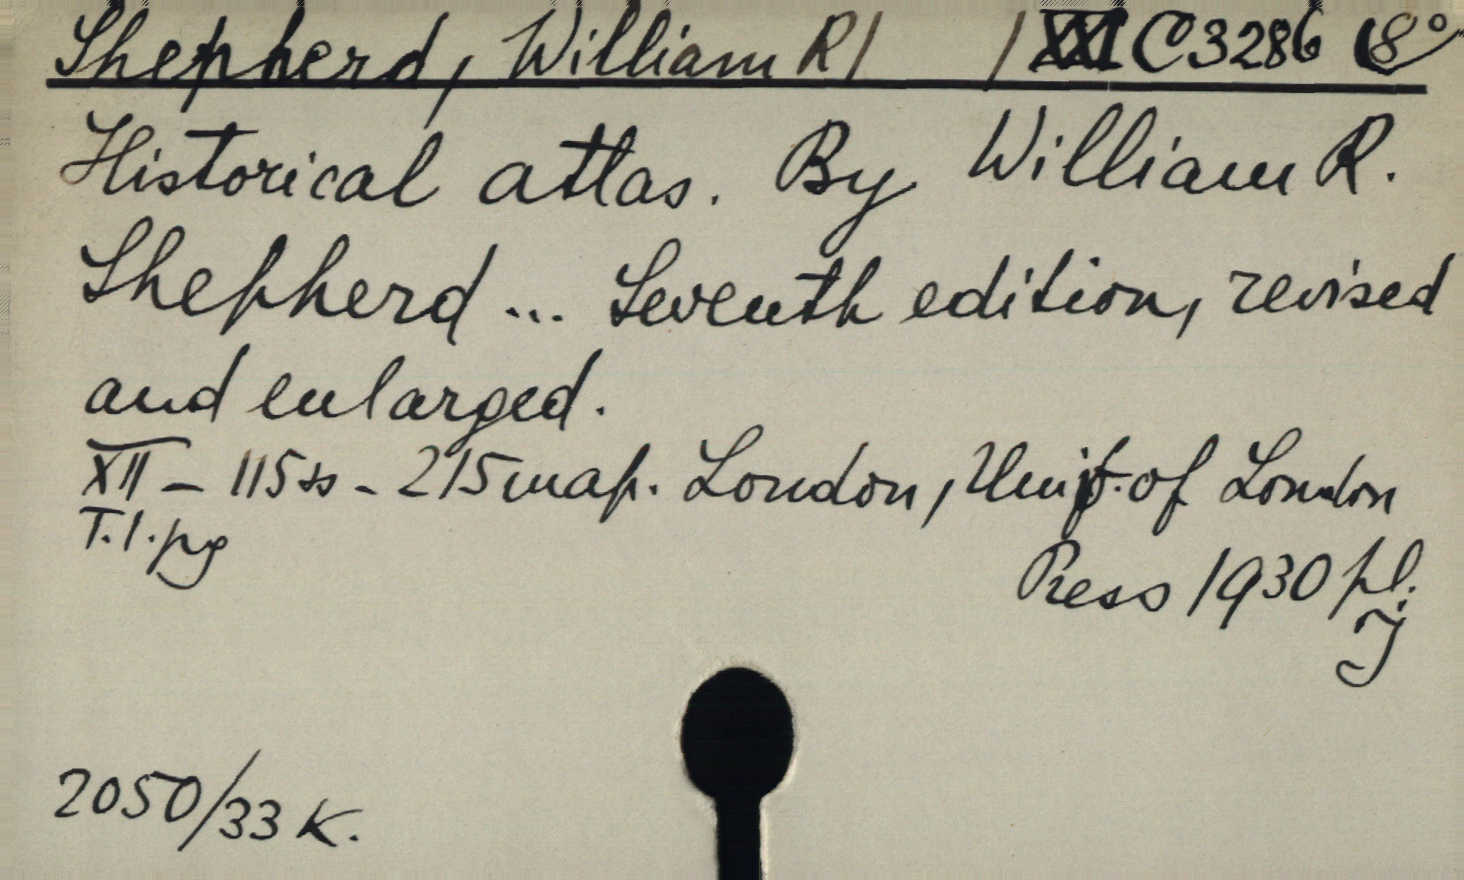 Shepherd, William R/ / XXI C 3286 (8°
Historical atlas. By William R.
Shepherd ... Seventh edition, revised
and enlarged.
XII – 115ss - 215map. London, Univ. of London
T.1.pg
Press 1930 pl.
2050/33 K.